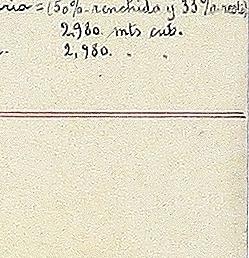 ria = (50%-renchido y 33%-reste)
2.980. mts cub.
2,980. " "